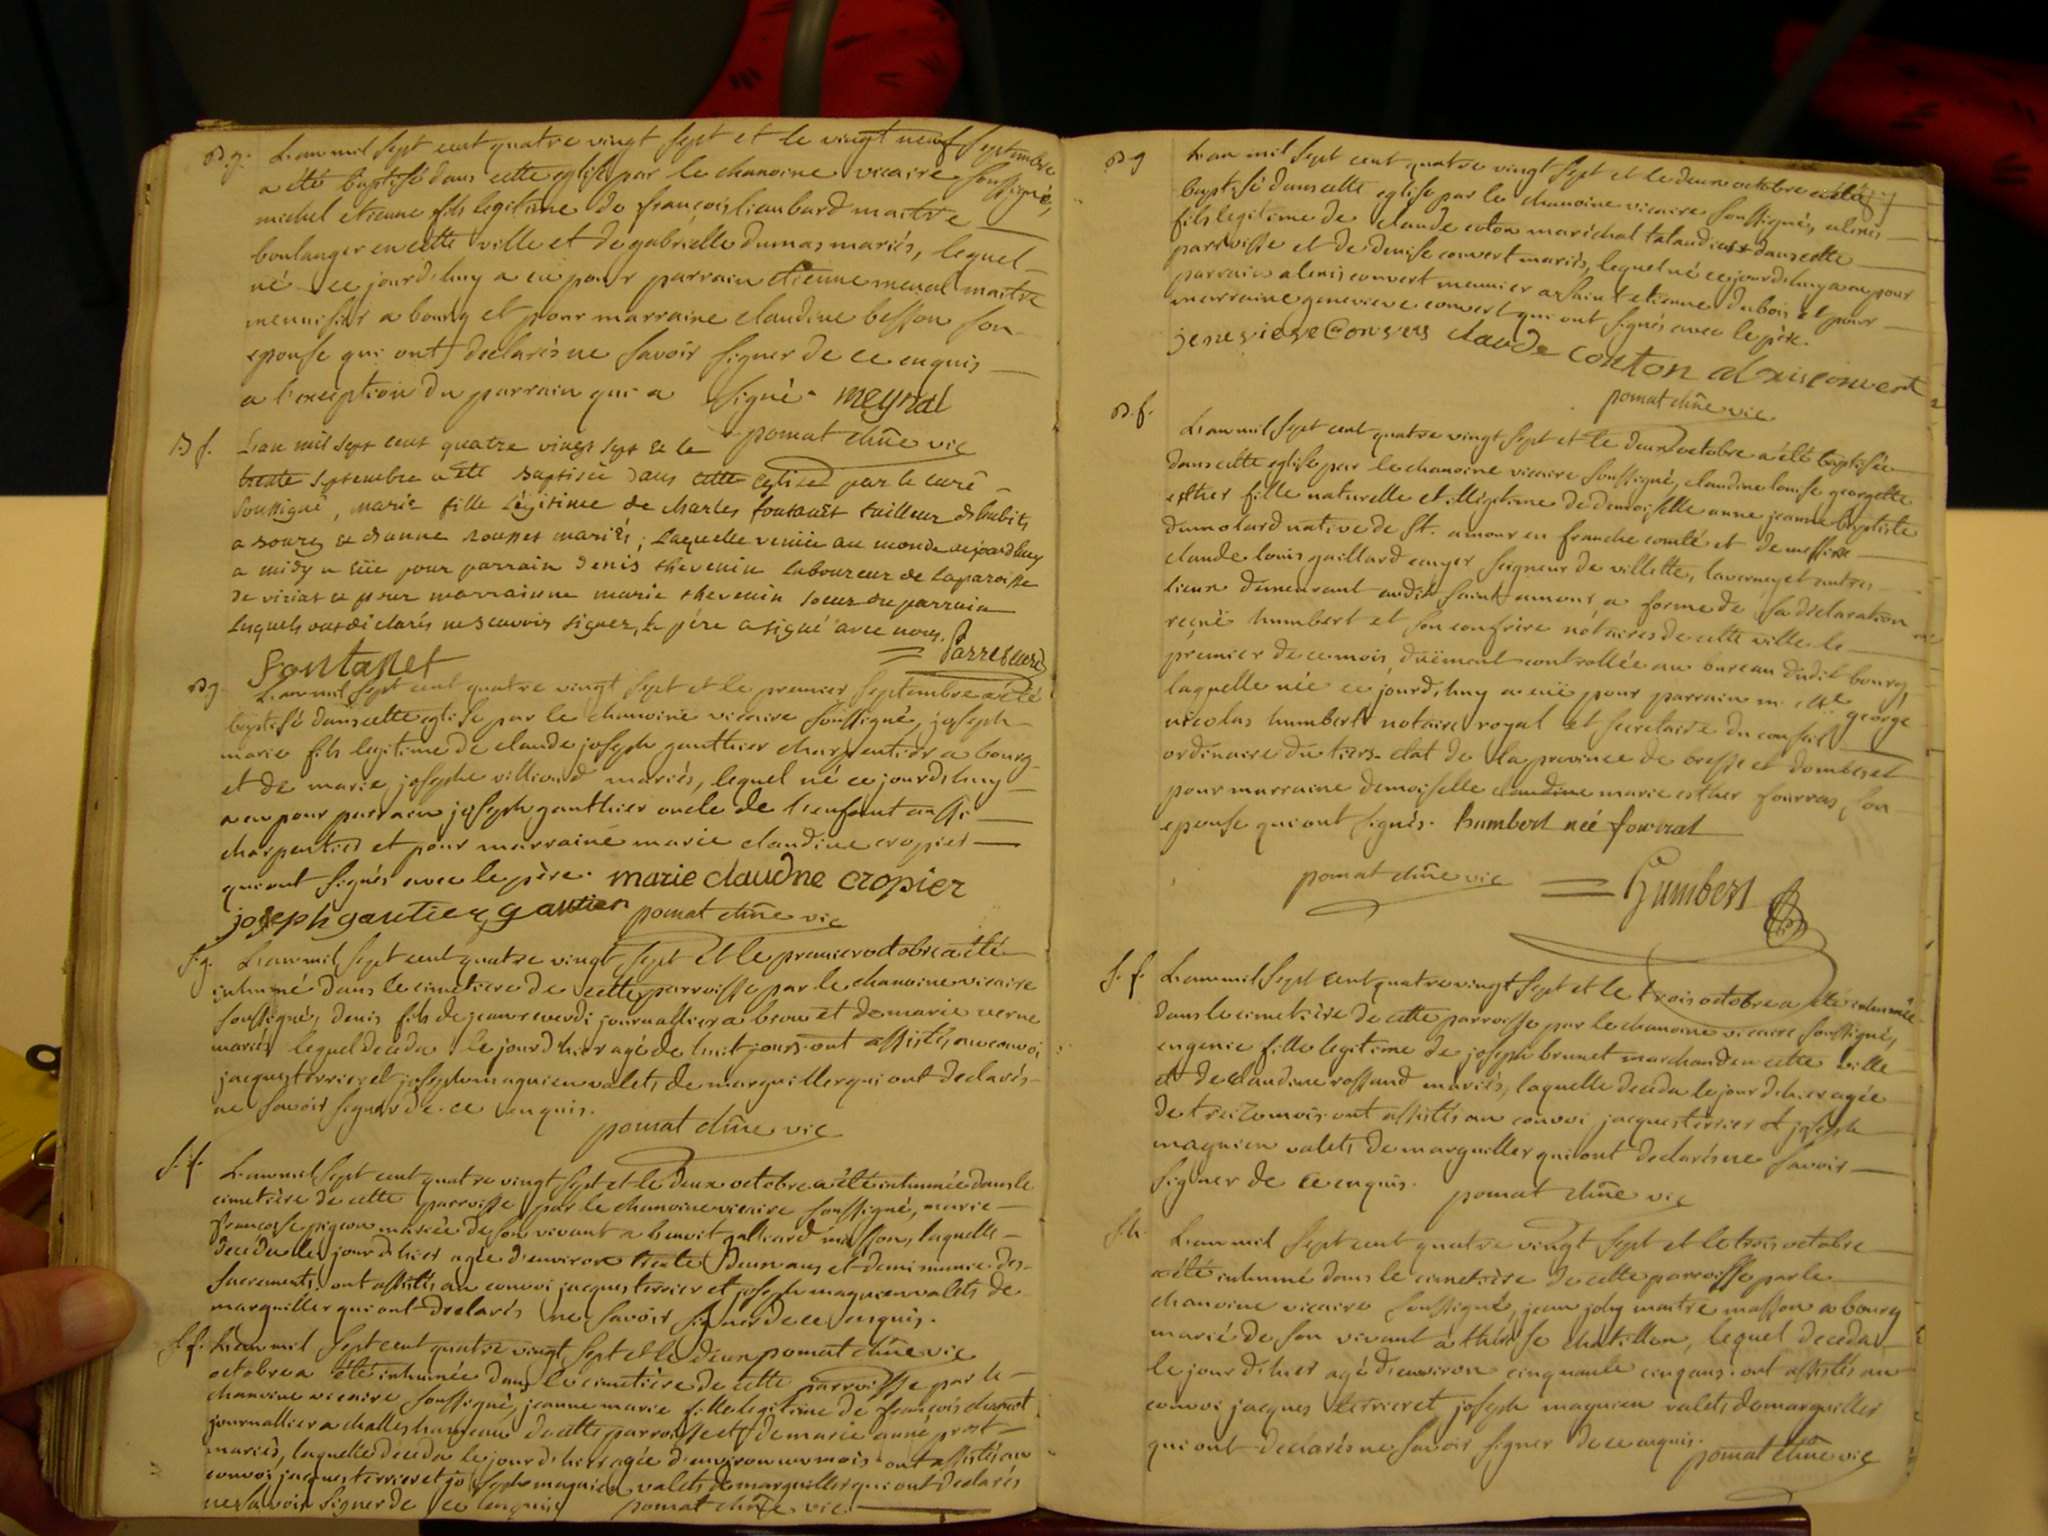 B.g. L'an mil sept cent quatre vingt sept et le vingt neuf septembre
a été baptisé dans cette eglise par le chanoine vicaire soussigné,
michel etienne fils legitime de françois lieubard maitre
boulanger en cette ville et de gabrielle dumas mariés, lequel
né ce jourd'huy a eu pour parrain etienne meynal maitre
menuisier a bourg et pour marraine claudine besson son
epouse qui ont declarés ne savoir signer de ce enquis
a l'exception du parrain qui a signé. meynal
pomat chne vic
B f. L'an mil sept cent quatre vingt sept & le
trente septembre a été baptisée dans cette eglise par le curé
soussigné, marie fille légitime de charles fontanet tailleur d'habits
a bourg et d'anne rousset mariés; laquelle venüe au monde aujourd'huy
a midy a eüe pour parrain denis thevenin laboureur de la paroisse
de viriat et pour marrainne marie thevenin soeur du parrain
lesquels ont déclarés ne scavoir signer, le père a signé avec nous.
fontanet
B g. L'an mil sept cent quatre vingt sept et le premier septembre a été
baptisé dans cette eglise par le chanoine vicaire soussigné, joseph
marie fils legitime de claude joseph gauthier charpentier a bourg
et de marie josephe villioud mariés, lequel né ce jourd'huy
a eu pour parrain joseph gauthier oncle de l'enfant aussi
charpentier et pour marraine marie claudine cropier
qui ont signés avec le père. marie claudne cropier
joseph gautier gautier pomat chne vic
S.g. L'an mil sept cent quatre vingt sept et le premier octobre a été
inhumé dans le cimetiere de cette parroisse par le chanoine vicaire
soussigné, denis fils de jean reverdi journallier a brou et de marie verne
mariés lequel deceda le jour d'hier agé de huit jours. ont assistés au convoi
jacques terrier et joseph maquien valets de marguiller qui ont declarés
ne savoir signer de ce enquis.
pomat chne vic
S. f. L'an mil sept cent quatre vingt sept et le deux octobre a été inhumée dans le
cimetière de cette parroisse par le chanoine vicaire soussigné, marie
françoise pigeon mariée de son vivant a benoit galicard masson, laquelle
deceda le jour d'hier agée d'environ trente deux ans et demi munie des
sacrements. ont assistés au convoi jacques terrier et joseph maquien valets de
marguiller qui ont declarés ne savoir signer de ce enquis.
pomat chne vic
S. f. L'an mil sept cent quatre vingt sept et le deux
octobre a été inhumée dans le cimetière de cette parroisse par le
chanoine vicaire soussigné, jeanne marie fille legitime de françois charnot
journallier a challes hameau de cette parroisse et de marie anne prost
mariés, laquelle deceda le jour d'hier agée d'environ un mois. ont assistés au
convoi jacques terrier et joseph maquien valets de marguiller qui ont declarés
ne savoir signer de ce enquis pomat chne vic
B g L'an mil sept cent quatre vingt sept et le deux octobre a été
baptisé dans cette eglise par le chanoine vicaire soussigné, alexis
fils legitime de claude coton maréchal talandier dans cette
parroisse et de denise convert mariés, lequel né ce jourd'huy a eu pour
parrain alexis convert meunier a saint etienne du bois et pour
marraine genevieve convert qui ont signés avec le père.
jenevieve Convers claude couton alexis convert
pomat chne vic
B. f. L'an mil sept cent quatre vingt sept et le deux octobre a été baptisée
dans cette eglise par le chanoine vicaire soussigné, claudine louise georgette
esther fille naturelle et illégitime de demoiselle anne jeanne baptiste
dumolard native de St. amour en franche comté et de messire
claude louis gaillard ecuyer seigneur de villette, laverney et autres
lieux demeurant audit saint amour, a forme de sa déclaration
reçuë humbert et son confrère notaires de cette ville le
premier de ce mois, duëment controllée au bureau dudit bourg,
laquelle née ce jourd'huy a eüe pour parrain m. george
nicolas humbert notaire royal et secretaire du conseil
ordinaire du tiers-etat de la province de bresse et dombes et
pour marraine demoiselle claudine marie esther fourras son
epouse qui ont signés. humbert née fourrat
pomat chne vic = humbert
S. f. L'an mil sept cent quatre vingt sept et le trois octobre a été inhumée
dans le cimetière de cette parroisse par le chanoine vicaire soussigné,
eugenie fille legitime de joseph brunet marchand en cette ville
et de claudine rossand mariés, laquelle deceda le jour d'hier agée
de treize mois. ont assistés au convoi jacques terrier et joseph
maquien valets de marguiller qui ont declarés ne savoir
signer de ce enquis. pomat chne vic
S.h. L'an mil sept cent quatre vingt sept et le trois octobre
a été inhumé dans le cimetière de cette parroisse par le
chanoine vicaire soussigné, jean joly maitre masson a bourg
marié de son vivant à thérèse chatillon, lequel deceda
le jour d'hier agé d'environ cinquante cinq ans. ont assistés au
convoi jacques terrier et joseph maquien valets de marguiller
qui ont declarés ne savoir signer de ce enquis. pomat chne vic